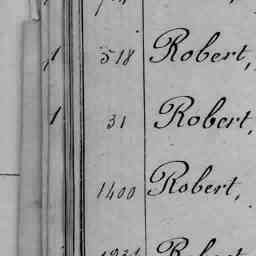 1 518 Robert,
1 31 Robert,
1400 Robert,
Robert